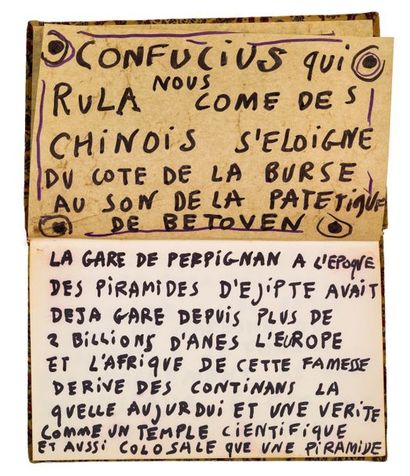 CONFUCIUS qui
RULA NOUS COME DES
CHINOIS S'ELOIGNE
DU COTE DE LA BURSE
AU SON DE LA PATETIQUE
DE BETOVEN
LA GARE DE PERPIGNAN A L'EPOQUE
DES PIRAMIDES D'EJIPTE AVAIT
DEJA GARE DEPUIS PLUS DE
2 BILLIONS D'ANES L'EUROPE
ET L'AFRIQUE DE CETTE FAMESSE
DERIVE DES CONTINANS LA
QUELLE AUJURDUI ET UNE VERITE
COMME UN TEMPLE CIENTIFIQUE
ET AUSSI COLOSALE QUE UNE PIRAMIDE